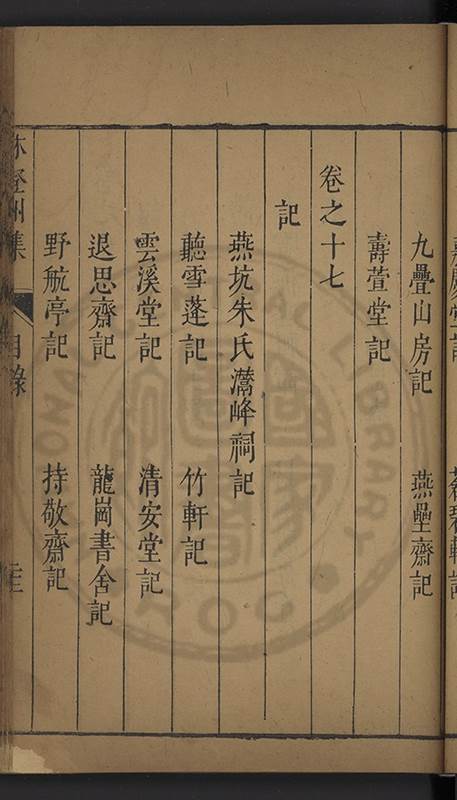 九疊山房記 燕壘齋記
壽萱堂記
卷之十七
記
燕坑朱氏灊峰祠記
聽雪蓬記 竹軒記
雲溪堂記 清安堂記
退思齋記 龍崗書舍記
野航亭記 持敬齋記
集 目錄